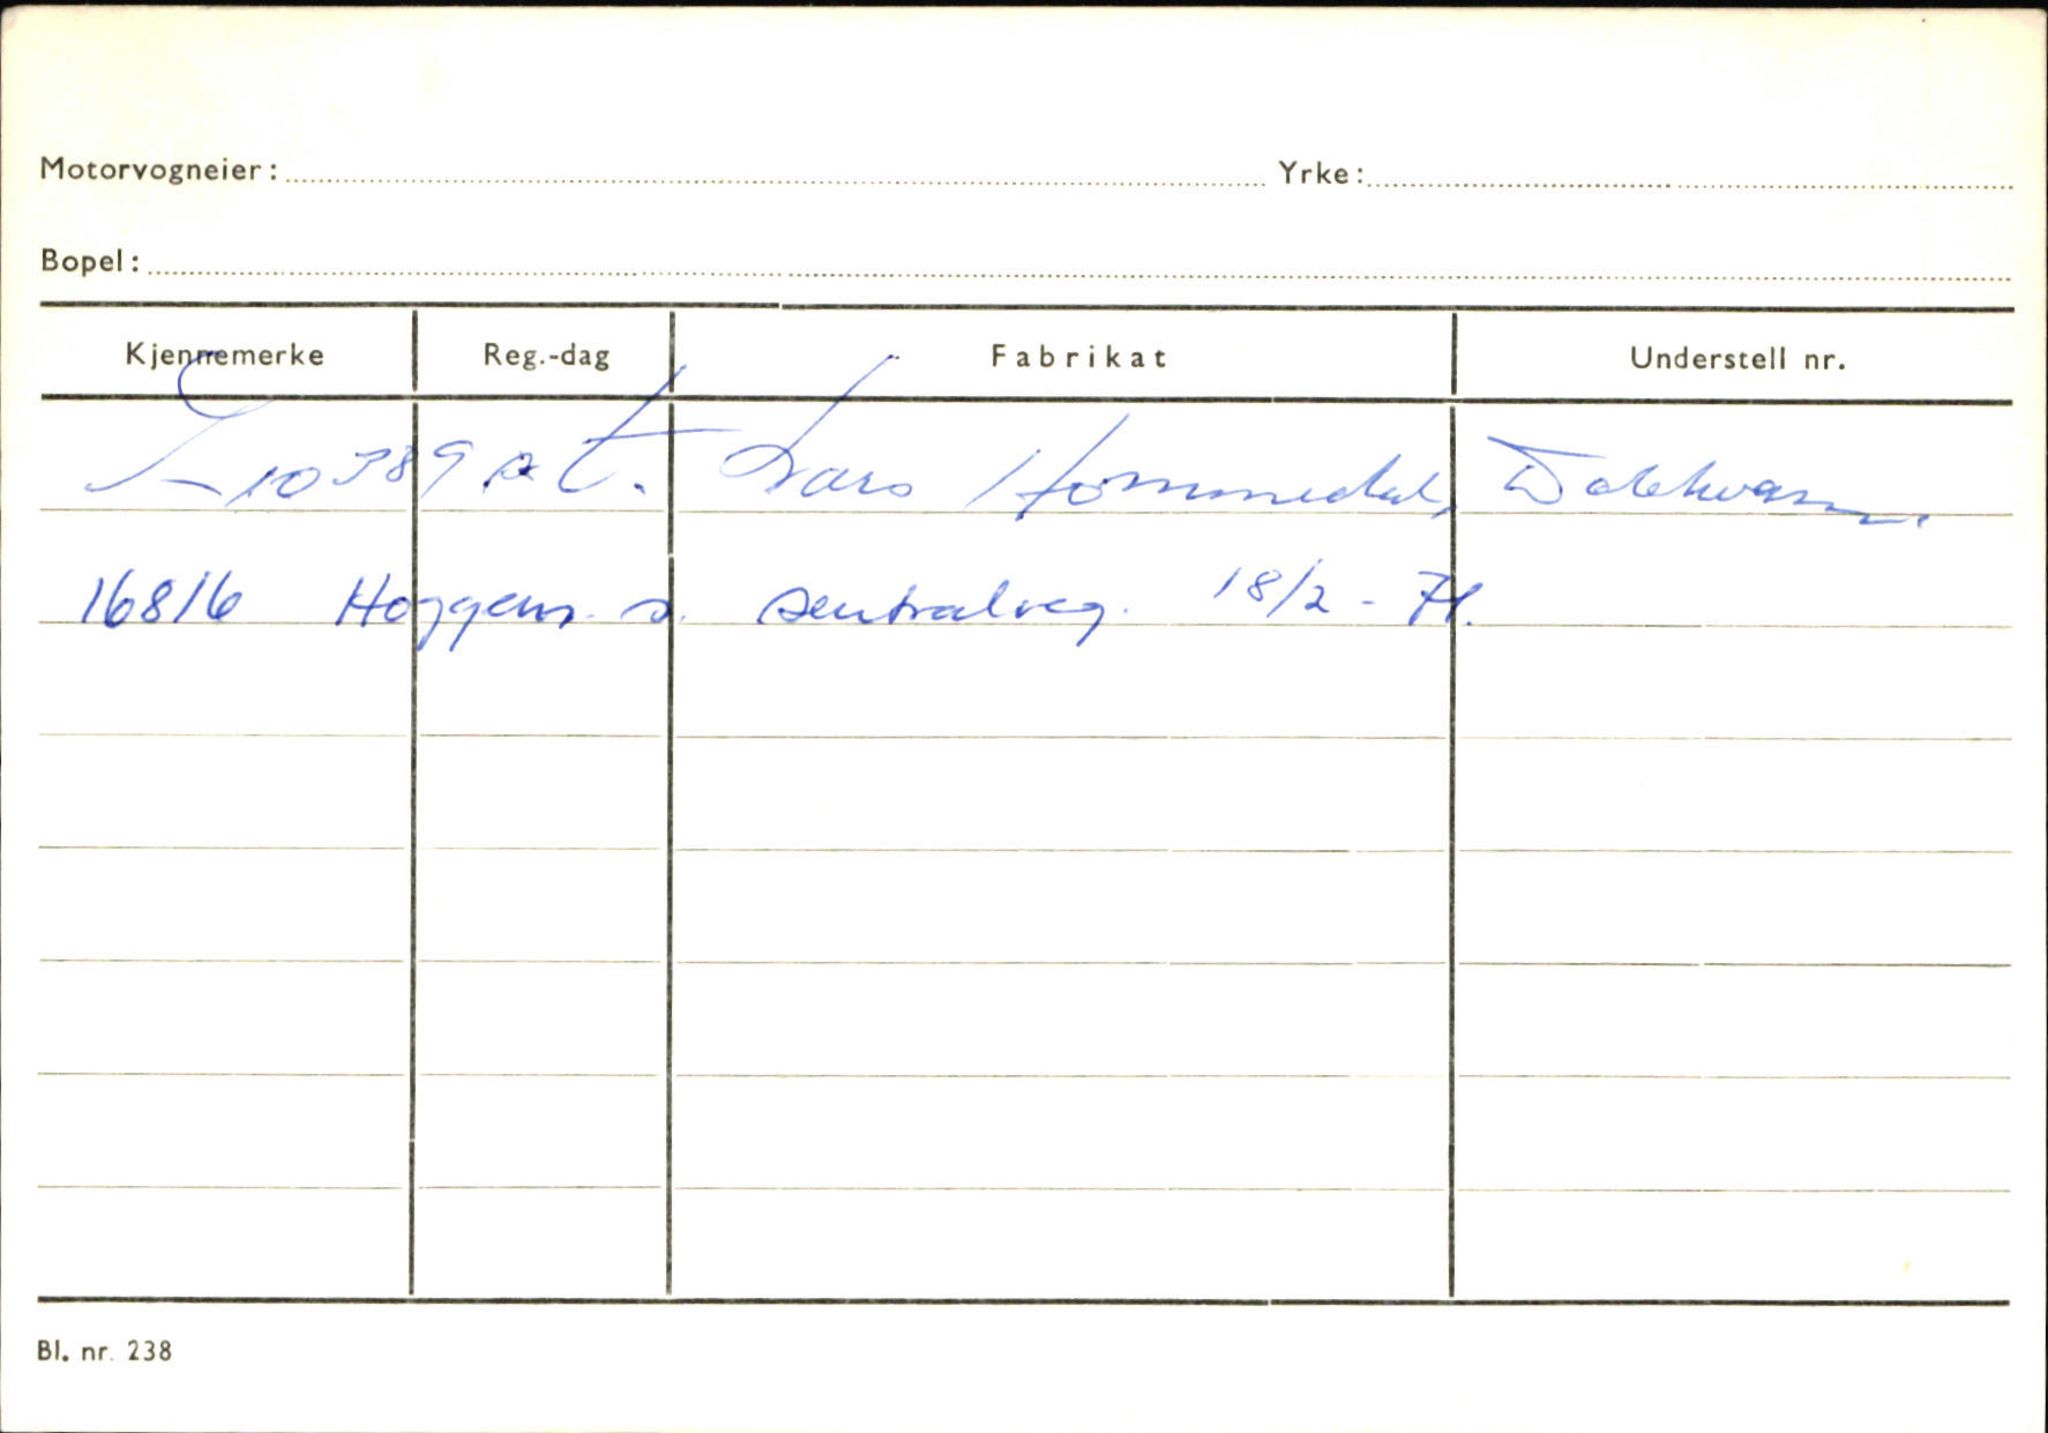 Motorvogneier: Yrke:
Bopel:
Kjennemerke Reg.-dag Fabrikat Understell nr.
10389 s.t. Lars Hommedal,
16816 s. sentralreg. 18/2 - 71.
Bl. nr. 238